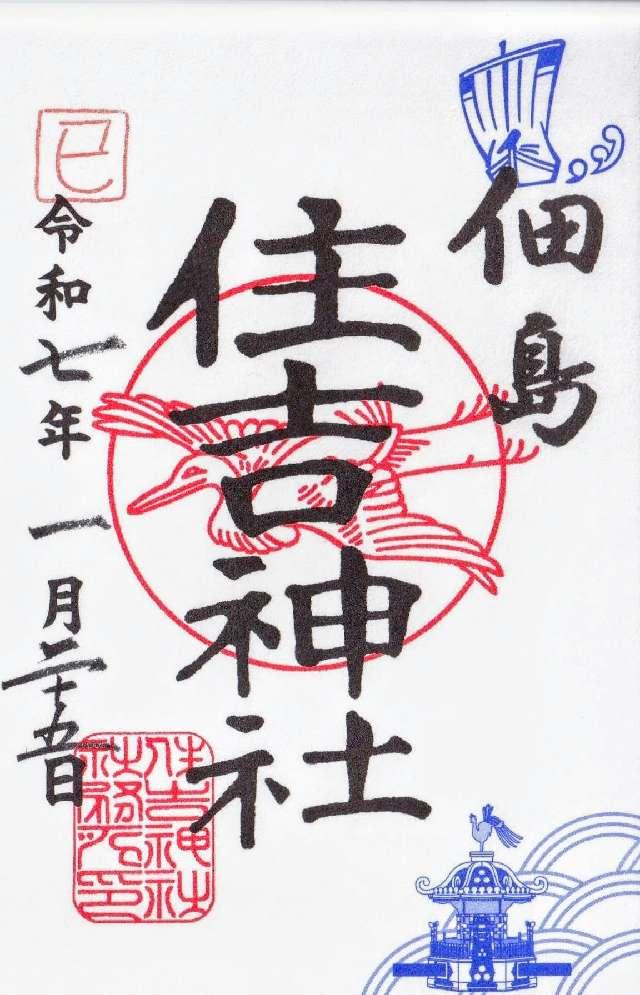 佃島
住吉神社
巳
令和七年一月二十五日
住吉神社
社務所印